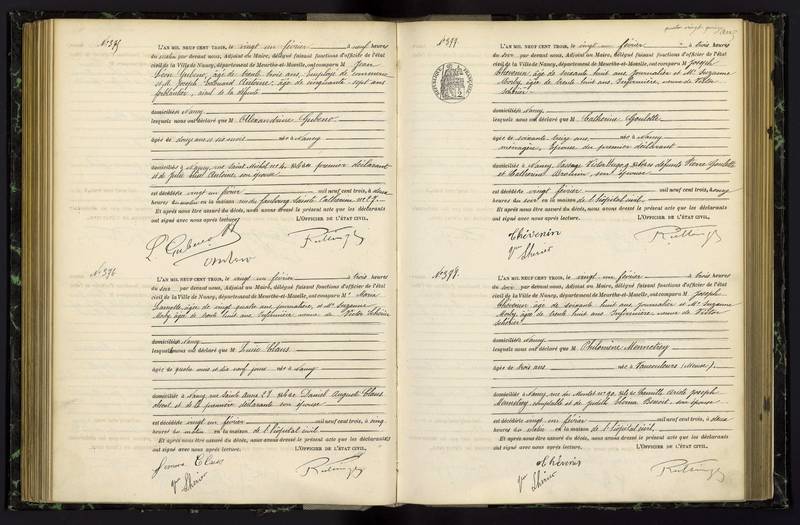 N° 375
L'AN MIL NEUF CENT TROIS, le vingt un février à neuf heures
du matin par devant nous, Adjoint au Maire, délégué faisant fonctions d'officier de l'état
civil de la Ville de Nancy, département de Meurthe-et-Moselle, ont comparu M Jean
Léon Gubeno, âgé de trente trois ans, employé de commerce
et M. Joseph Edouard Antoine, âgé de cinquante sept ans
ferblantier, aïeul de la défunte
domiciliés à Nancy
lesquels nous ont déclaré que M Alexandrine Gubeno
âgée de douze ans et six mois née à Nancy
domiciliée à Nancy, rue Saint Michel n° 4, fille du premier déclarant
et de Julie Antoine son épouse
est décédée vingt un février mil neuf cent trois, à deux
heures du matin en la maison rue du faubourg Sainte Catherine n° 27
Et après nous être assuré du décès, nous avons dressé le présent acte que les déclarants
ont signé avec nous après lecture. L'OFFICIER DE L'ÉTAT CIVIL,
L Gubeno
N° 376
L'AN MIL NEUF CENT TROIS, le vingt un février à trois heures
du soir par devant nous, Adjoint au Maire, délégué faisant fonctions d'officier de l'état
civil de la Ville de Nancy, département de Meurthe-et-Moselle, ont comparu M Marie
âgée de vingt quatre ans, journalière, et Me Suzanne
Morby, âgée de trente huit ans Infirmière, veuve de Victor
domiciliés à Nancy
lesquels nous ont déclaré que M Claus
âgée de quatre mois et dix neuf jours née à Nancy
domiciliée à Nancy, rue Sainte Anne 27 fille de Daniel Auguste Claus
absent et de la première déclarante son épouse
est décédée vingt un février mil neuf cent trois, à cinq
heures du matin en la maison de l'hôpital civil
Et après nous être assuré du décès, nous avons dressé le présent acte que les déclarants
ont signé avec nous après lecture. L'OFFICIER DE L'ÉTAT CIVIL,
femme Claus
Vve
quatre vingt quinze
N° 377
L'AN MIL NEUF CENT TROIS, le vingt un février à trois heures
du soir par devant nous, Adjoint au Maire, délégué faisant fonctions d'officier de l'état
civil de la Ville de Nancy, département de Meurthe-et-Moselle, ont comparu M Joseph
Thévenin, âgé de soixante huit ans Journalier et Me Suzanne
Morby, âgée de trente huit ans, Infirmière, veuve de Victor
domiciliés à Nancy
lesquels nous ont déclaré que M Catherine Goulotte
âgée de soixante treize ans, née à Nancy
ménagère, épouse du premier déclarant
domiciliée à Nancy, Passage Victor Hugo, 9 fille des défunts Pierre Goulotte
et Catherine, son épouse
est décédée vingt février mil neuf cent trois, à onze
heures du soir en la maison de l'hôpital civil
Et après nous être assuré du décès, nous avons dressé le présent acte que les déclarants
ont signé avec nous après lecture. L'OFFICIER DE L'ÉTAT CIVIL,
Thévenin
Vve
L'AN MIL NEUF CENT TROIS, le vingt un février à trois heures
du soir par devant nous, Adjoint au Maire, délégué faisant fonctions d'officier de l'état
civil de la Ville de Nancy, département de Meurthe-et-Moselle, ont comparu M Joseph
Thévenin âgé de soixante huit ans Journalier et Me Suzanne
Morby, âgée de trente huit ans, Infirmière, veuve de Victor
domiciliés à Nancy
lesquels nous ont déclaré que M Philomène Monnetrey
âgée de trois ans, née à Vaucouleurs (Meuse)
domiciliée à Nancy, rue du Montet n° 90, fille de Camille Joseph
Monnetrey, comptable et de Benoit, son épouse
est décédée vingt un février mil neuf cent trois, à deux
heures du matin en la maison de l'hôpital civil
Et après nous être assuré du décès, nous avons dressé le présent acte que les déclarants
ont signé avec nous après lecture. L'OFFICIER DE L'ÉTAT CIVIL,
Thévenin
Vve